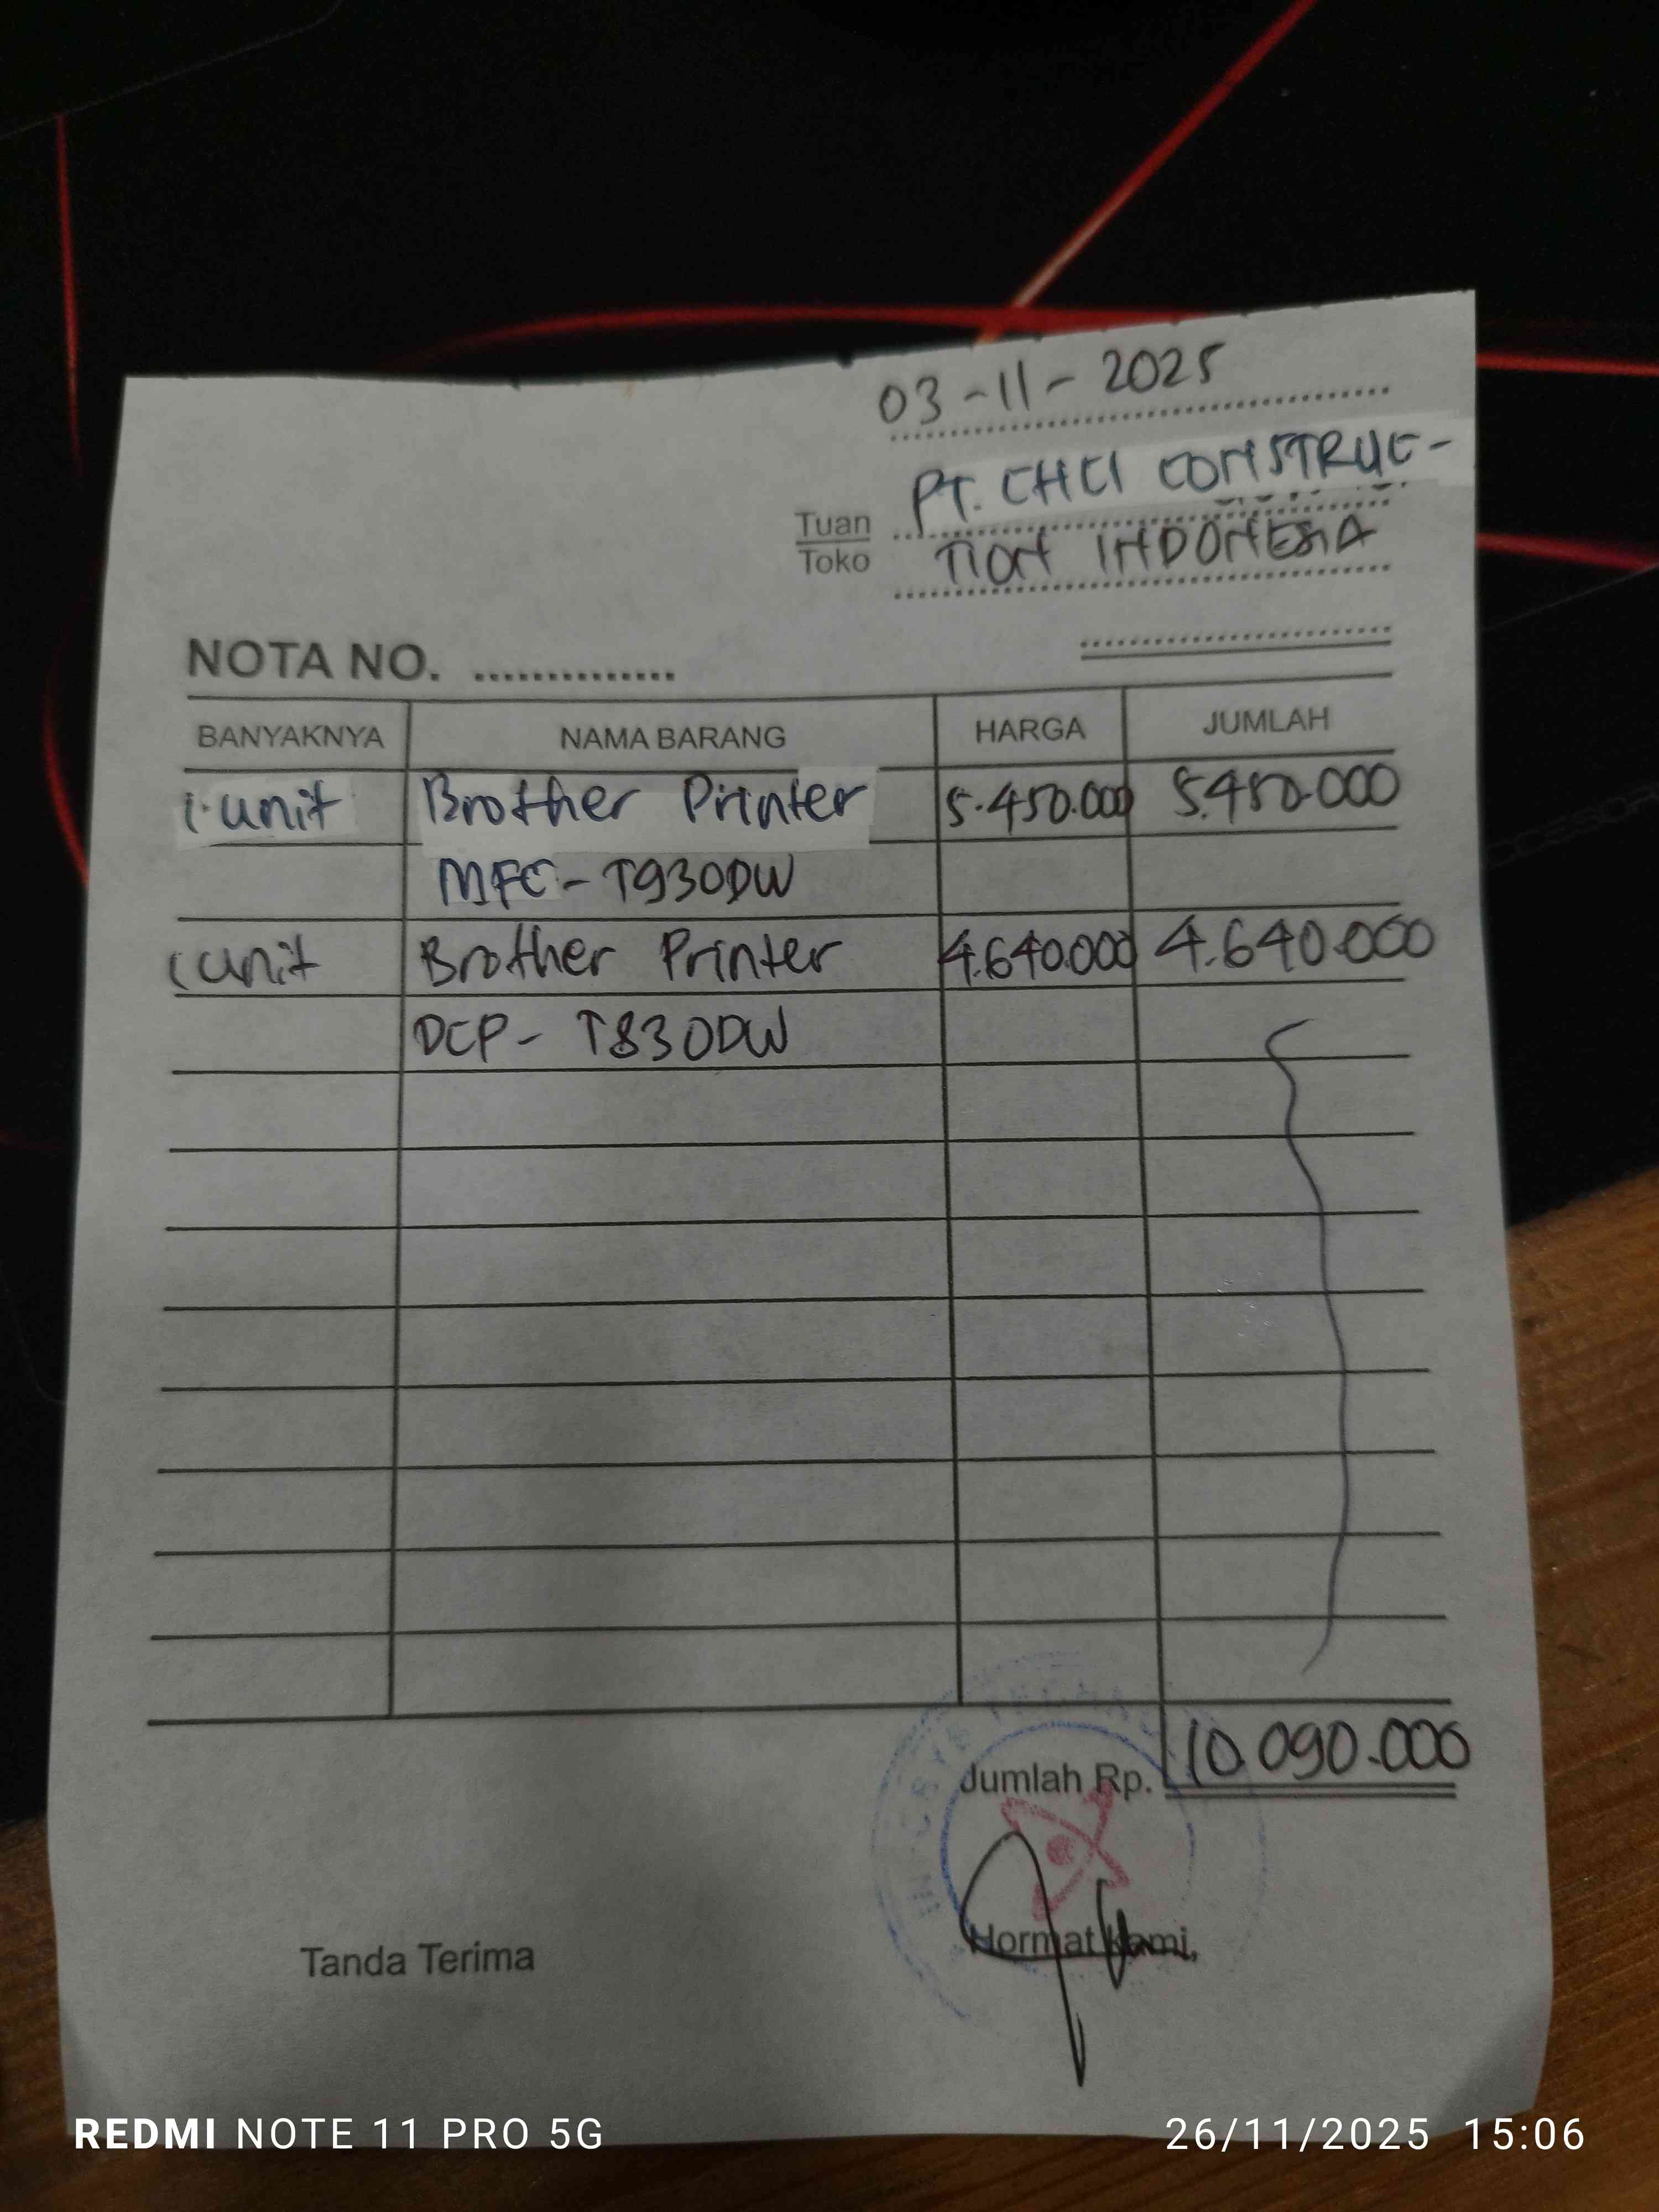 03-11-2025
Tuan
Toko
PT. CHCI CONSTRUC-
TION INDONESIA
NOTA NO. ..............
BANYAKNYA NAMA BARANG HARGA JUMLAH
1 unit Brother Printer 5.450.000 5.450.000
MFC-T930DW
1 unit Brother Printer 4.640.000 4.640.000
DCP-T830DW
Jumlah Rp. 10.090.000
Tanda Terima Hormat Kami,
REDMI NOTE 11 PRO 5G 26/11/2025 15:06